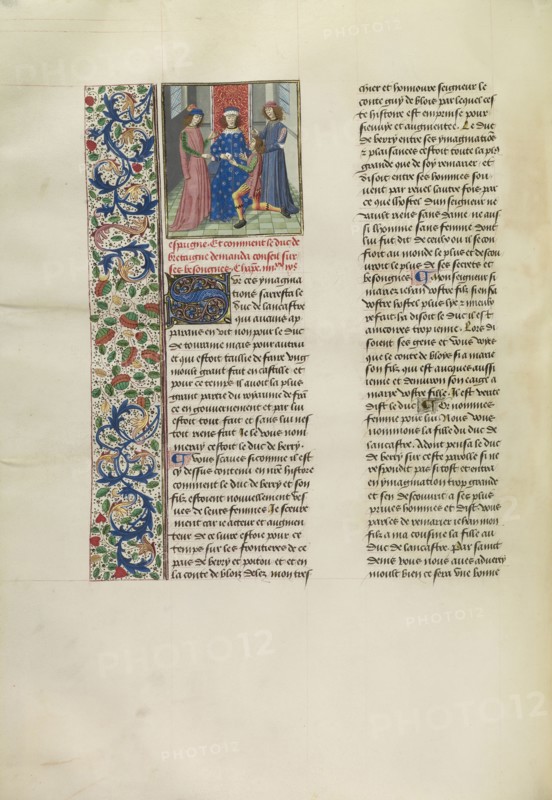 espaigne. Et comment le duc de
bretaigne demanda conseil sur
ses besoingnes. Chapre.
Sur ces ymagina
tions sarresta le
duc de lancastre
qui aucuns ap
parans en voit non pour le duc
de touraine mais pour autrui
et qui estoit taillie de faire ung
moult grant fait en castille et
pour ce temps il avoit la plus
grant partie du royaume de fran
ce en gouvernement et par lui
estoit tout fait et sans lui nes
toit riens fait Je le vous nom
meray cestoit le duc de berry.
Vous scaves si comme il est
cy dessus contenu en nre histoire
comment le duc de berry et son
filz estoient nouvellement ves
ves de leurs femmes. Je scay
ment car ie acteur et augmen
teur de ce livre estoie pour ce
temps sur les frontieres de ce
pais de berry et poitou et et en
la conte de blois delez mon tres
chier et honnoure seigneur le
conte guy de blois par lequel ces
te histoire est emprise pour
suievye et augmentee. Le duc
de berry entre ses ymaginacions
z plaisances cestoit toute la plus
grande que de soy remarier et
disoit entre ses hommes sou
vent par revel lautre fois par
ce que lhostel dun seigneur ne
vault riens sans dame ne aus
si lhomme sans femme dont
lui fut dit de ceulx ou il secon
fioit au monde le plus et descou
vroit le plus de ses secretz et
besoingnes. Monseigneur si
mariez iehan vostre filz sien sa
vostre hostel plus lye z mieulx
refait ha disoit le duc il est
aincores trop ienne. Lors di
soient ses gens et vous vees
que le conte de bloys si a marie
son filz qui est auques aussi
ienne et denviron son eage a
marie vostre fille. Il est verite
dist le duc Or nommes
femme pour lui. Nous vous
nommons la fille du duc de
lancastre. Adont pensa le duc
de berry sur ceste parolle si ne
respondit pas si tost et entra
en ymagination trop grande
et sen descouvrit a ses plus
prives hommes et dist vous
parles de remarier iehan mon
filz a ma cousine la fille au
duc de lancastre. Par saint
denis vous nous aves advertiz
moult bien ce sera une bonne
PHOTO12